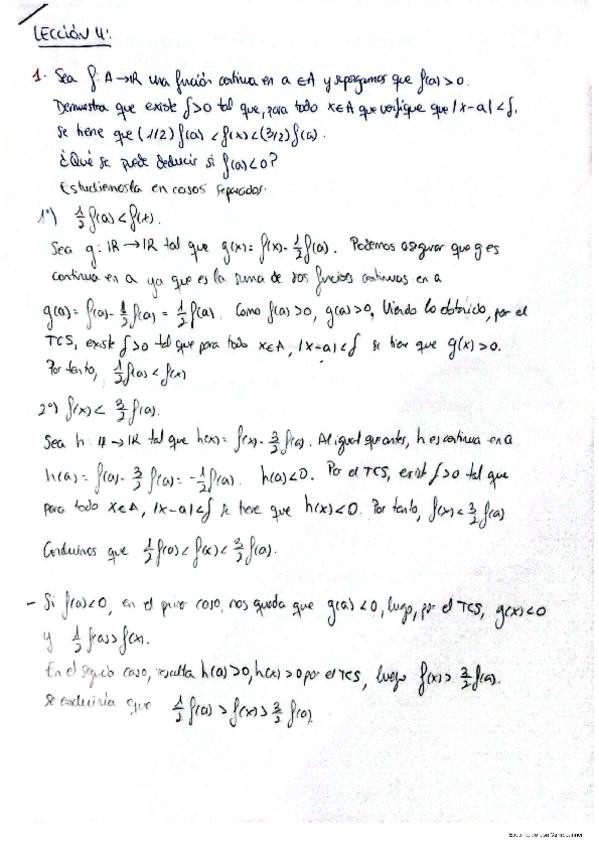 LECCIÓN 4:
1. Sea f: A→ℝ una función continua en a ∈ A y supongamos que f(a) > 0.
Demuestra que existe δ>0 tal que, para todo x∈A que verifique que |x-a| < δ,
se tiene que (1/2) f(a) < f(x) < (3/2) f(a).
¿Qué se puede deducir si f(a) < 0?
Estudiemosla en casos separados.
1º) 1/2 f(a) < f(x).
Sea g: ℝ → ℝ tal que g(x) = f(x) - 1/2 f(a). Podemos asegurar que g es
continua en a ya que es la suma de dos funcioes continuas en a
g(a) = f(a) - 1/2 f(a) = 1/2 f(a). Como f(a) > 0, g(a) > 0. Viendo lo obtenido, por el
TCS, existe δ>0 tal que para todo x∈A, |x-a| < δ se tiene que g(x) > 0.
Por tanto, 1/2 f(a) < f(x)
2º) f(x) < 3/2 f(a).
Sea h: → ℝ tal que h(x) = f(x) - 3/2 f(a). Al igual que antes, h es continua en a
h(a) = f(a) - 3/2 f(a) = - 1/2 f(a). h(a) < 0. Por el TCS, exist δ>0 tal que
para todo x∈A, |x-a| < δ se tiene que h(x) < 0. Por tanto, f(x) < 3/2 f(a)
Concluimos que 1/2 f(a) < f(x) < 3/2 f(a).
- Si f(a) < 0, en el primer caso, nos queda que g(a) < 0, luego, por el TCS, g(x) < 0
y 1/2 f(a) > f(x).
En el segundo caso, resulta h(a) > 0, h(x) > 0 por el TCS, luego f(x) > 3/2 f(a).
Se concluiría que 1/2 f(a) > f(x) > 3/2 f(a)